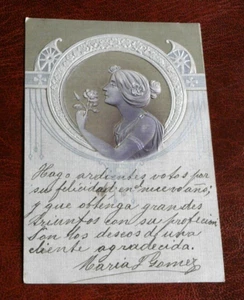 Hago ardientes votos por
su felicidad en nuevo año;
y que obtenga grandes
triunfos con su profesion
Son los deseos de una
cliente agradecida.
Maria F Gomez